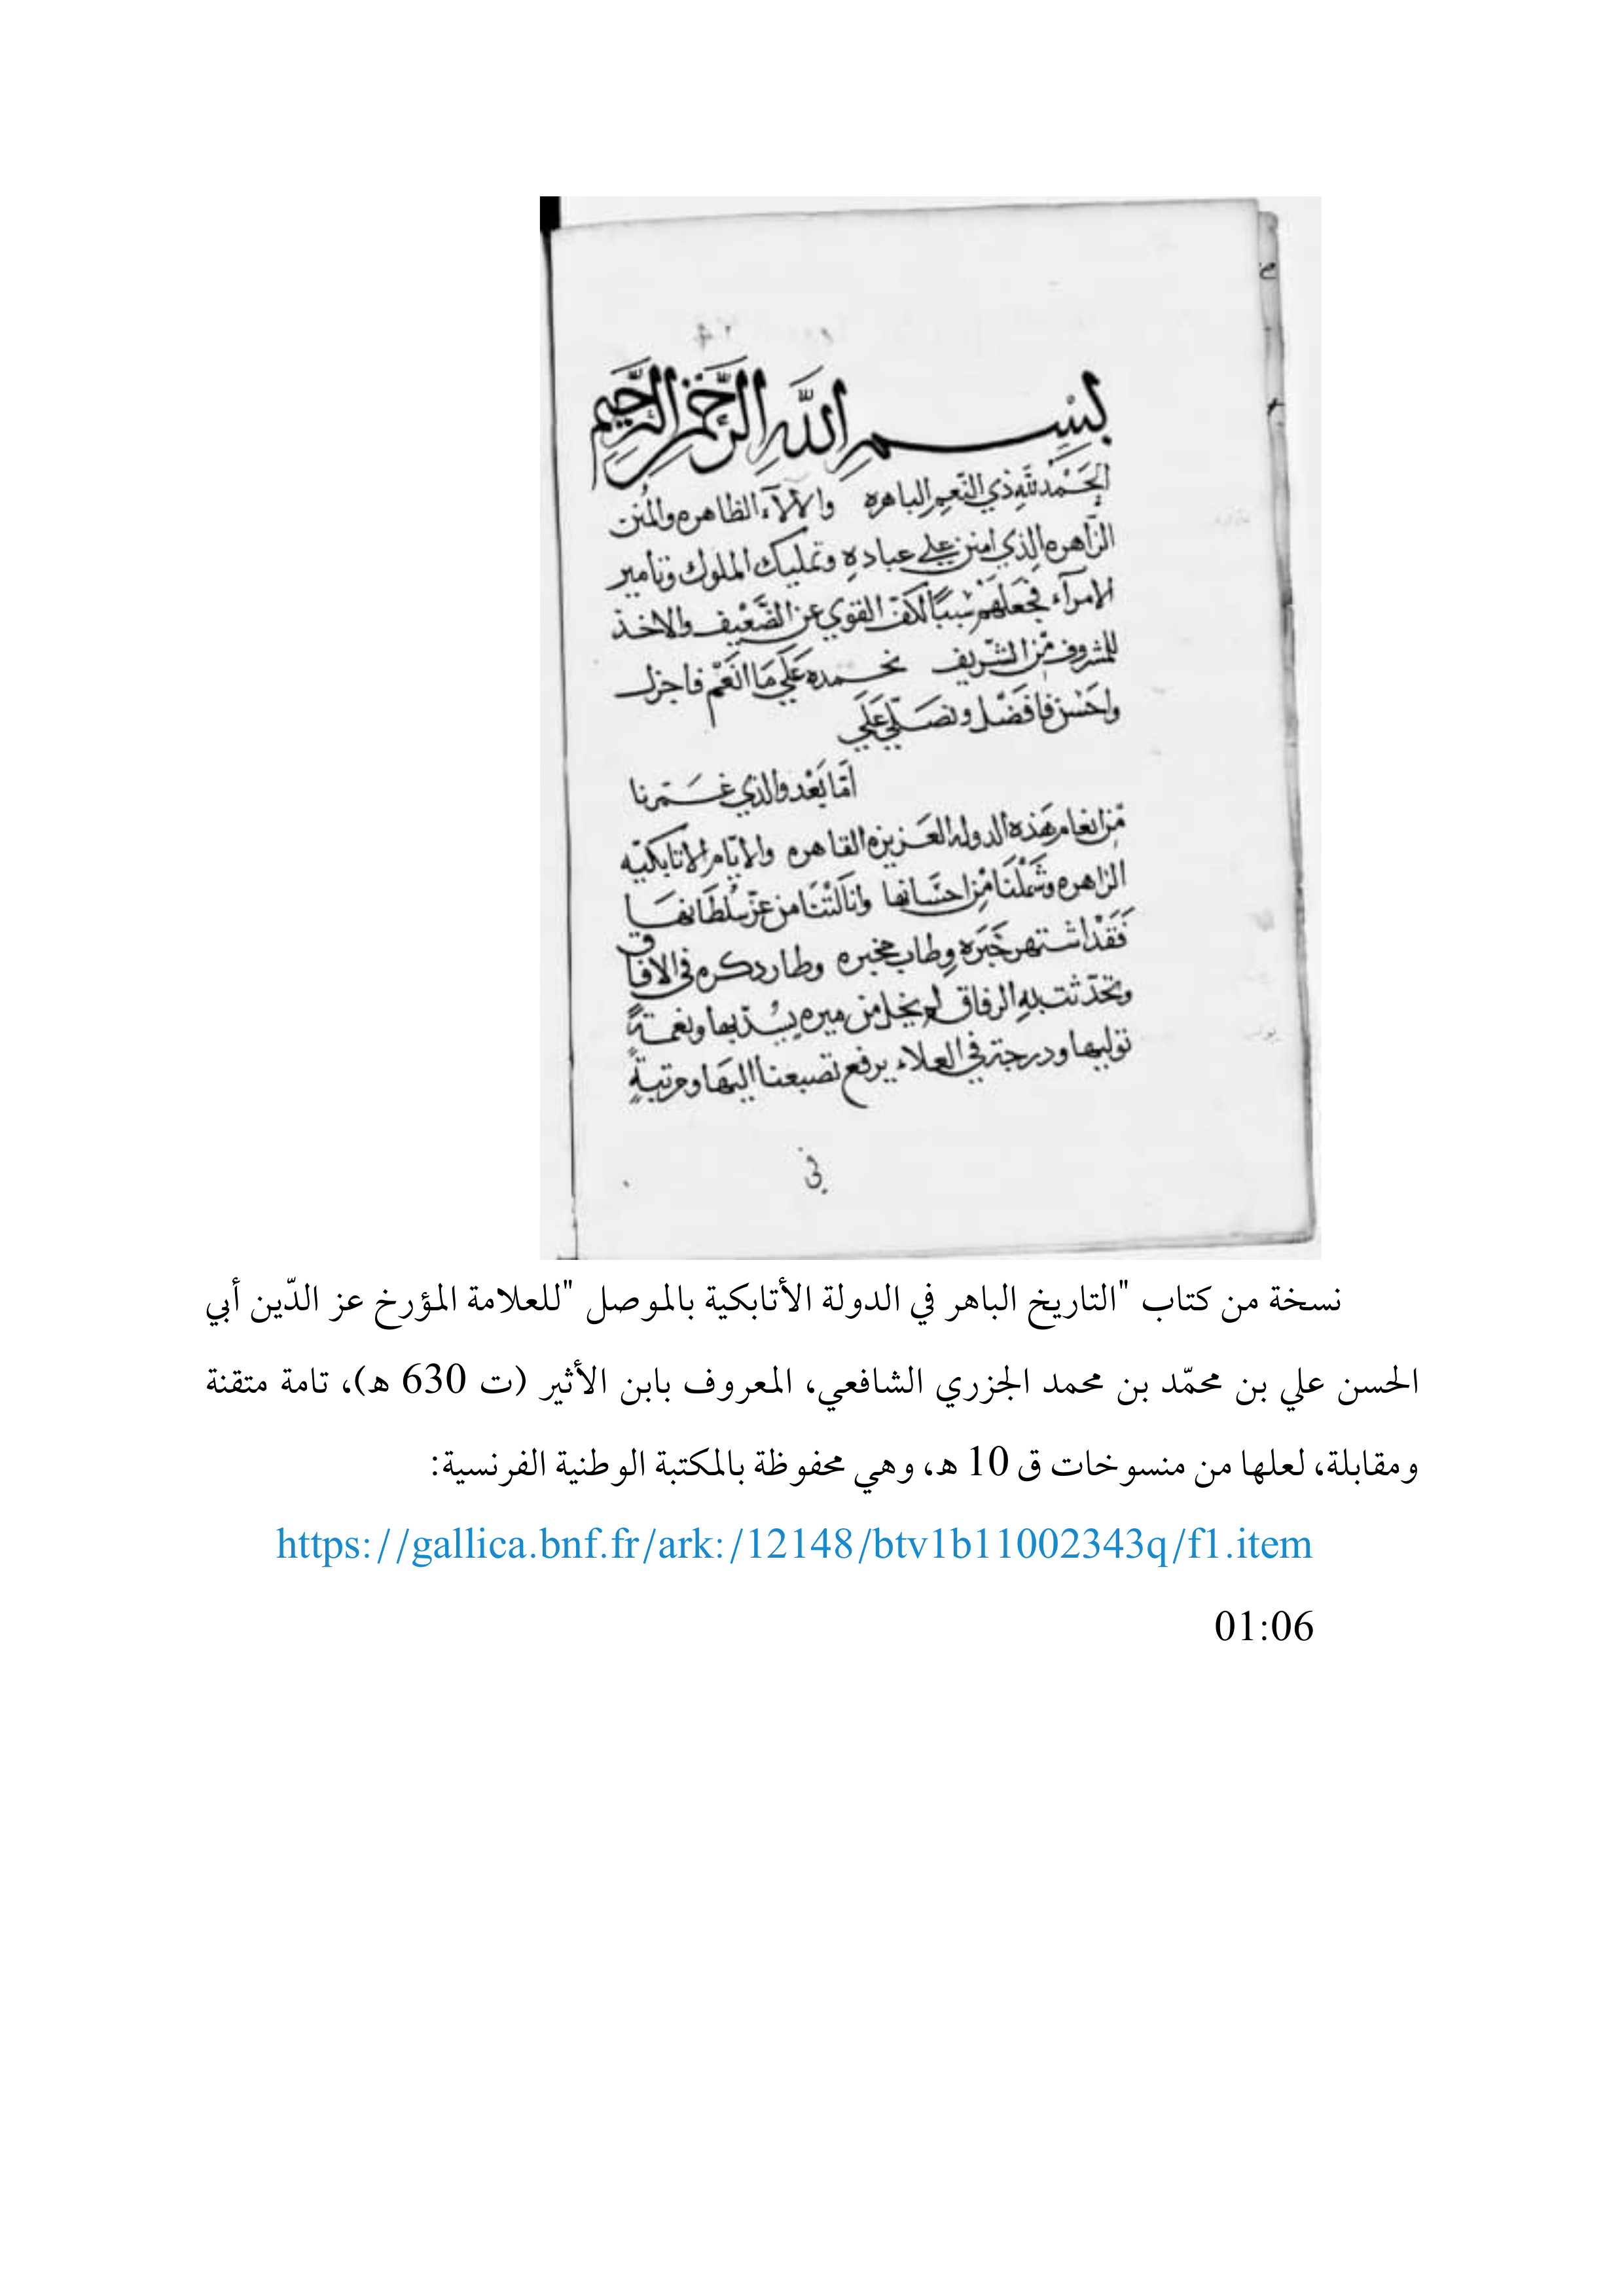 بِسْمِ اللَّهِ الرَّحْمٰنِ الرَّحِيمِ
الحَمْدُ للهِ ذي النّعم الباهره والالآء الظاهره والمُنن
الزّاهره الذي امتن علي عباده وتمليك الملوك وتامير
الامرآء فجعلهم سببًا لكفّ القوي عن الضَّعيف والاخذ
للمشروف من الشّريف نحمده عَلَي مَا انعَم فاجزل
واحسن فافضَل ونصَلّي عَلَي
أمّا بَعْد والذي غَمرنا
مّن انعام هَذه الدوله العَزيزه القاهره والايّام الاتابكيّه
الزاهره وشملنَا مّن احسَانها وانالتنَا من عزّ سُلطَانهَا
فَقَد اشتهر خَبَره وطاب مخبره وطار دكره في الافاق
وتحدّثت به الرفاق لم يخل من ميره يسُدّ بها ونعمةً
توليها ودرجة في العلاء يرفع بضبعنا اليهَا ومرتبةٍ
في
نسخة من كتاب "التاريخ الباهر في الدولة الأتابكية بالموصل "للعلامة المؤرخ عز الدّين أبي
الحسن علي بن محمّد بن محمد الجزري الشافعي، المعروف بابن الأثير (ت 630 ه)، تامة متقنة
ومقابلة، لعلها من منسوخات ق 10 ه، وهي محفوظة بالمكتبة الوطنية الفرنسية:
https://gallica.bnf.fr/ark:/12148/btv1b11002343q/f1.item
01:06